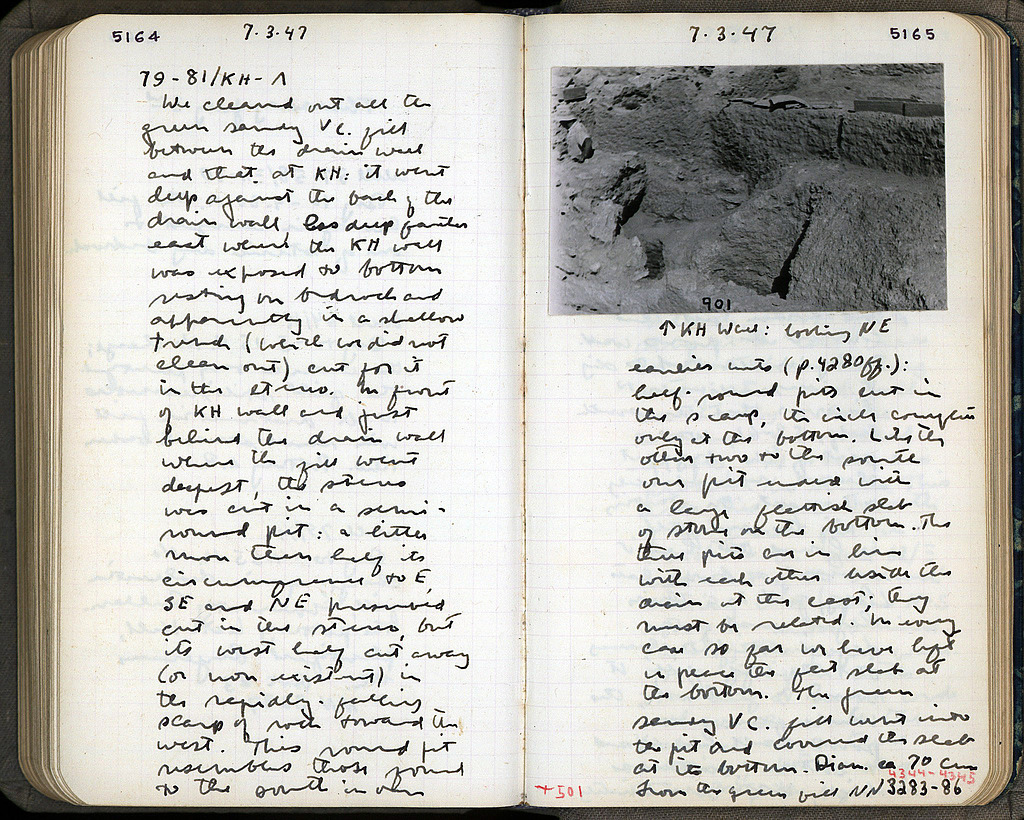 5164
7·3·47
79-81/KH-Λ
We cleaned out all the
green sandy V C. fill
between the drain wall
and that at KH: it went
deep against the back of the
drain wall, less deep farther
east where the KH wall
was exposed to bottom
resting on bedrock and
apparently in a shallow
trench (which we did not
clean out) cut for it
in the stereo. In front
of KH wall and just
behind the drain wall
where the fill went
deepest, the stereo
was cut in a semi-
round pit: a little
more than half its
circumference to E,
SE and NE preserved,
cut in the stereo, but
its west half cut away
(or non existent) in
the rapidly falling
scarp of rock toward the
west. This round pit
resembles those found
to the south in our
7·3·47
5165
901
↑ KH Wall: looking NE
earlier cuts (p. 4280ff.):
half-round pits cut in
the scarp, the circle complete
only at the bottom. Like the
other two to the south
our pit ended with
a large flattish slab
of stone on the bottom. The
three pits are in line
with each other beside the
drain at the east; they
must be related. In every
case so far we have left
in place the flat slab at
the bottom. The green
sandy V C. fill went into
the pit and covered the slab
at its bottom. Diam. ca 70 cm
4344-4345
From the green fill NN 3283-86
+501